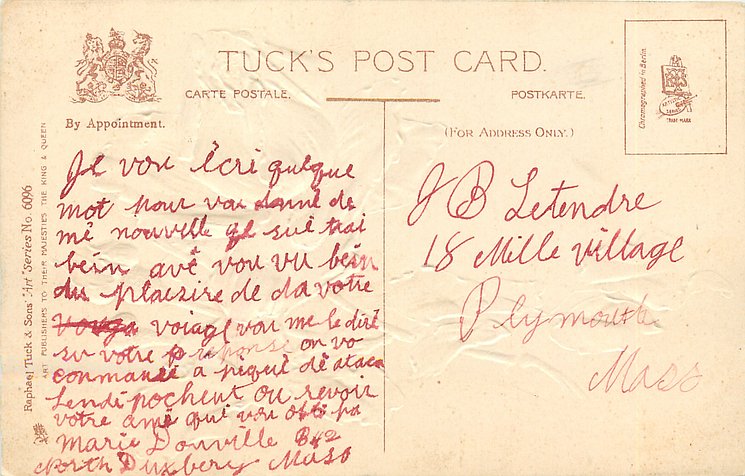 TUCK'S POST CARD.
CARTE POSTALE.
POSTKARTE.
By Appointment.
(FOR ADDRESS ONLY.)
Chromographed in Berlin
TRADE MARK
Raphael Tuck & Sons "Art" Series No. 6096
ART PUBLISHERS TO THEIR MAJESTIES THE KING & QUEEN
Je vou écri quelque
mot pour vou donné de
mé nouvelle je suè trai
bein avé vou vu bein
du plaisire de da votre
voiage vou me le diré
su votre réponse on vo
conmansé a pequé dé ataca
Lendi pochent ou revoir
votre amé qui vou
Marie Douville
North Duxbery Mass
J B Letendre
18 Mille village
Plymouth
Mass